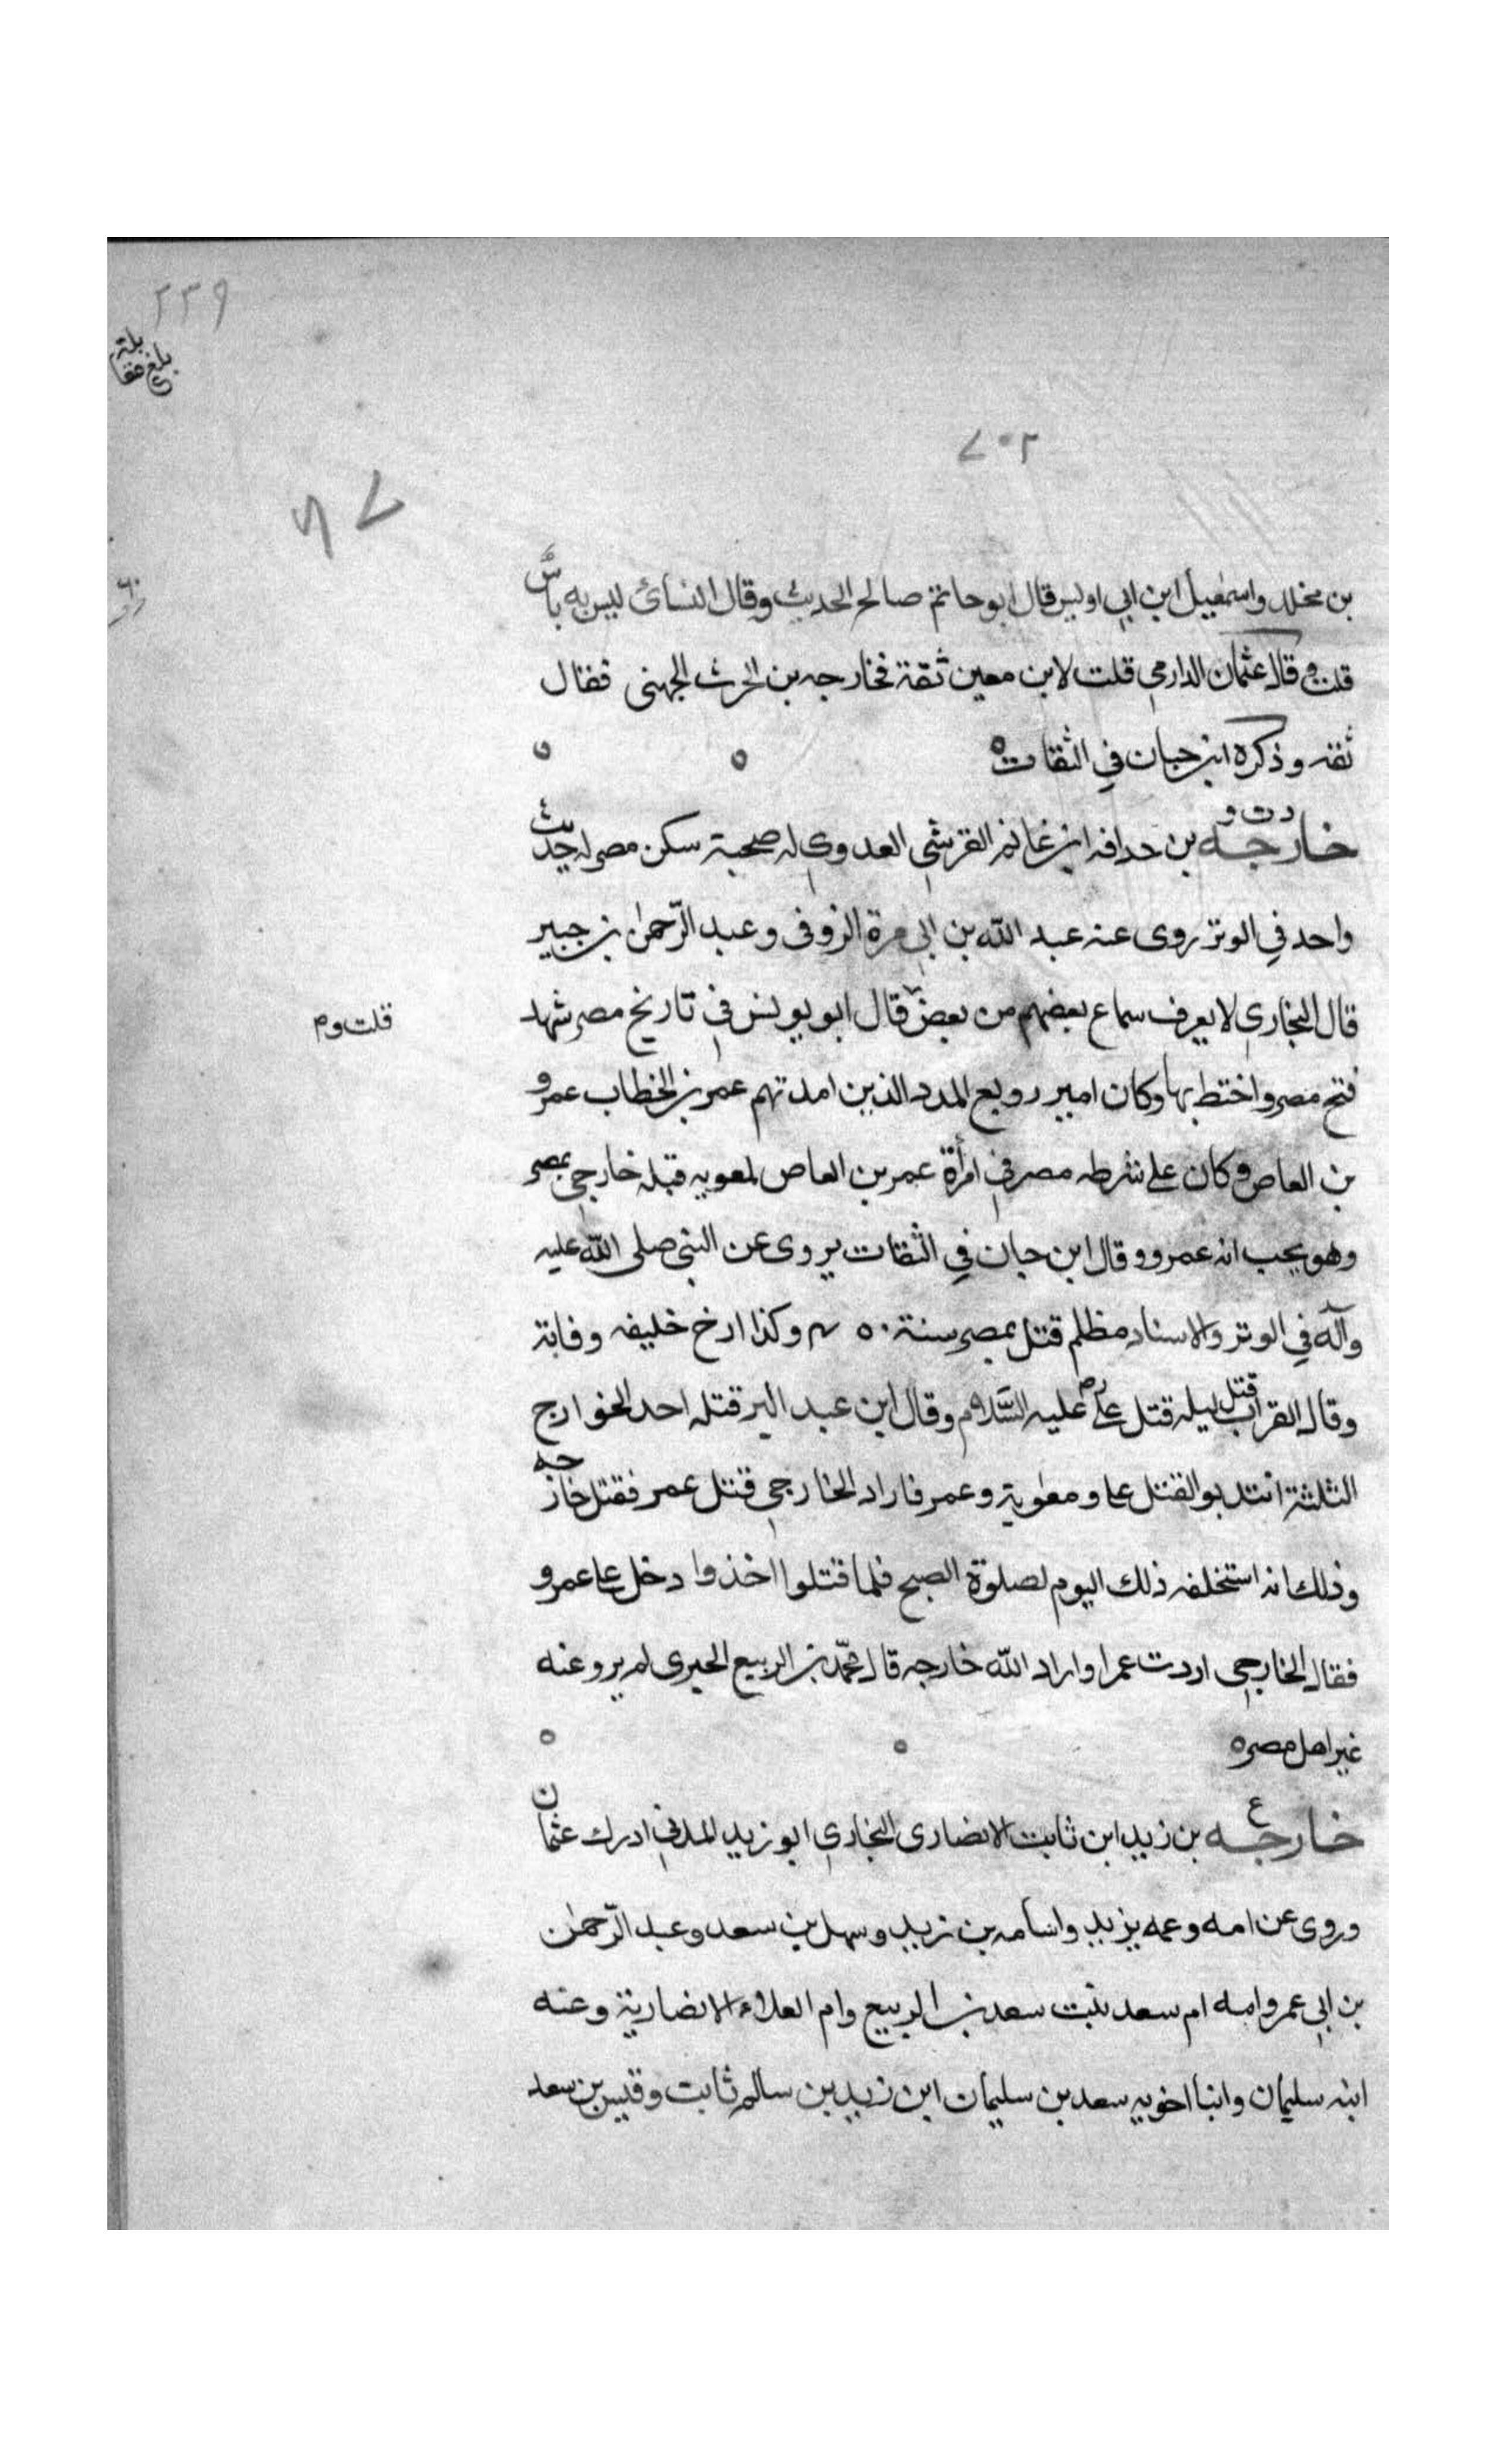 ٢٣٩
بلغ مقابلة
٧٠٢
بن مخلد واسمعيل ابن ابي اويس قال ابو حاتم صالح الحديث وقال النسائ ليس به باس
قلت وقال عثمان الدارمي قلت لابن معين ثقة فخارجه بن الحرث الجهنى فقال
ثقه وذكره ابن حبان في الثقات ه ه ه
د ت و
خارجه بن حدافه ابن غانم القرشي العدوي له صحبة سكن مصر له حديث
واحد في الوتر روى عنه عبد الله بن ابي مرة الزوفى وعبد الرحمن بن جبير
قال البخاري لا يعرف سماع بعضهم من بعض قال ابو يونس في تاريخ مصر شهد
قلت وم
فتح مصر واختط بها وكان امير روبع المدد الذين امد تهم عمر بن الخطاب عمرو
بن العاص وكان على شرطه مصر في امرأة عمر بن العاص لمعويه قبله خارجي بمصر
وهو يحب انه عمرو وقال ابن حبان في الثقات يروى عن النبي صلى الله عليه
وآله في الوتر والاسناد مظلم قتل بمصر سنة ٤٠ وكذا ارخ خليفه وفاته
وقال القراب قتل ليله قتل علي عليه السلام وقال ابن عبد البر قتله احد الخوارج
الثلثة انتدبوا لقتل على ومعوية وعمر فاراد الخارجي قتل عمر فقتل خارجه
وذلك انه استخلفه ذلك اليوم لصلوة الصبح فلما قتلوا اخذوا دخل على عمرو
فقال الخارجي اردت عمرا واراد الله خارجه قال محمد بن الربيع الجيرى لم يرو عنه
غير اهل مصر ه ه ه
ع
خارجه بن زيد ابن ثابت الانصارى النجاري ابو زيد المدني ادرك عثمان
وروى عن امه وعمه يزيد واسامه بن زيد وسهل بن سعد وعبد الرحمن
بن ابي عمر وامه ام سعد بنت سعد بن الربيع وام العلاء الانصارية وعنه
ابنه سليمان وابنا اخويه سعد بن سليمان ابن زيد بن سالم ثابت وقيس بن سعد